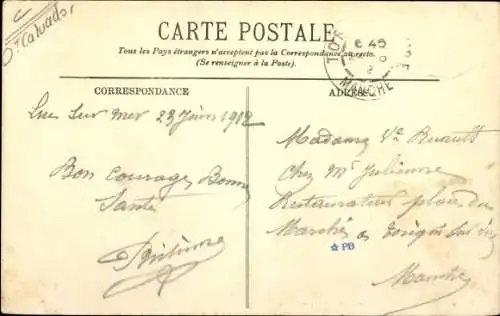 Dt Calvados
CARTE POSTALE
Tous les Pays étrangers n'acceptent pas la Correspondance au recto.
(Se renseigner à la Poste).
CORRESPONDANCE
Luc sur mer 23 Juin 1912
Bon courage, Bonne
Santé
ADRESSE
TOR
MANCHE
Madame Ve
Chez Mr Julienne
Restaurateur place du
Marché a Torigni sur Vire
Manche
☆ PB